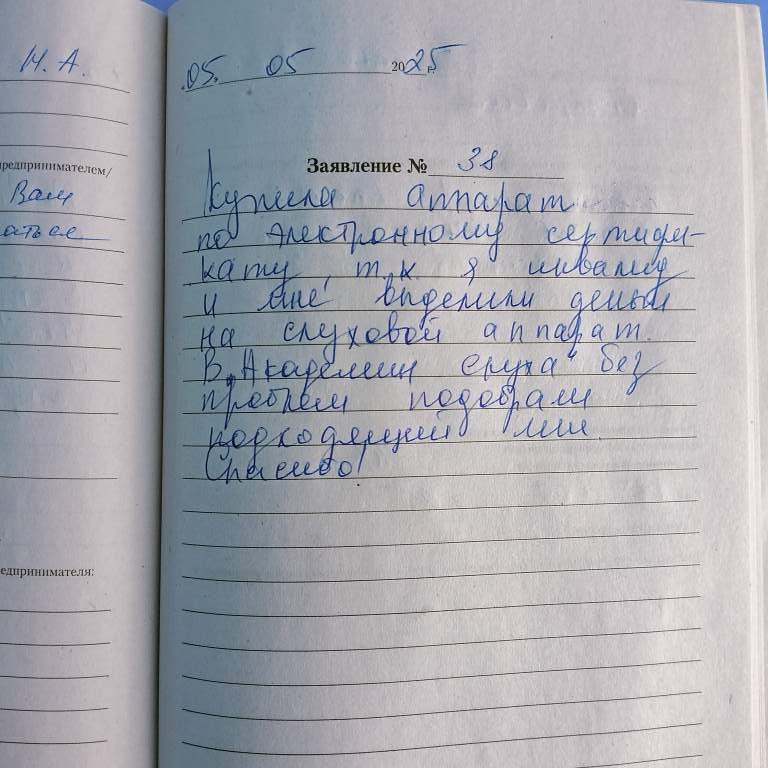 Н. А.
предпринимателем/
Вам
едпринимателя:
05. 05 2025
Заявление № 38
Купила аппарат
по электронному сертифи-
кату, т.к. я инвалид
и мне выделили деньги
на слуховой аппарат.
В "Академии слуха" без
проблем подобрали
подходящий мне.
Спасибо!